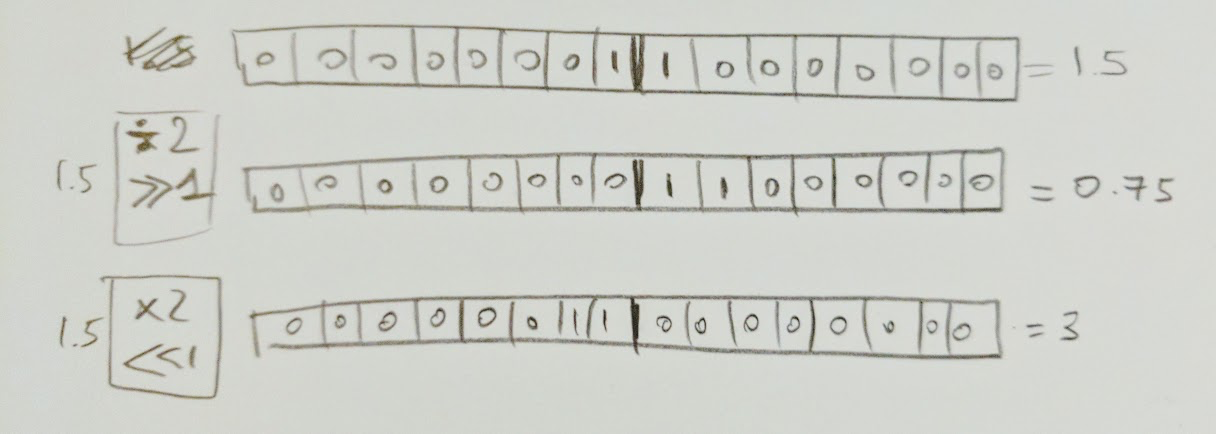 0 0 0 0 0 0 0 1 1 0 0 0 0 0 0 0 = 1.5
÷2
1.5 >>1 0 0 0 0 0 0 0 0 1 1 0 0 0 0 0 0 = 0.75
x2
1.5 <<1 0 0 0 0 0 0 1 1 0 0 0 0 0 0 0 0 = 3